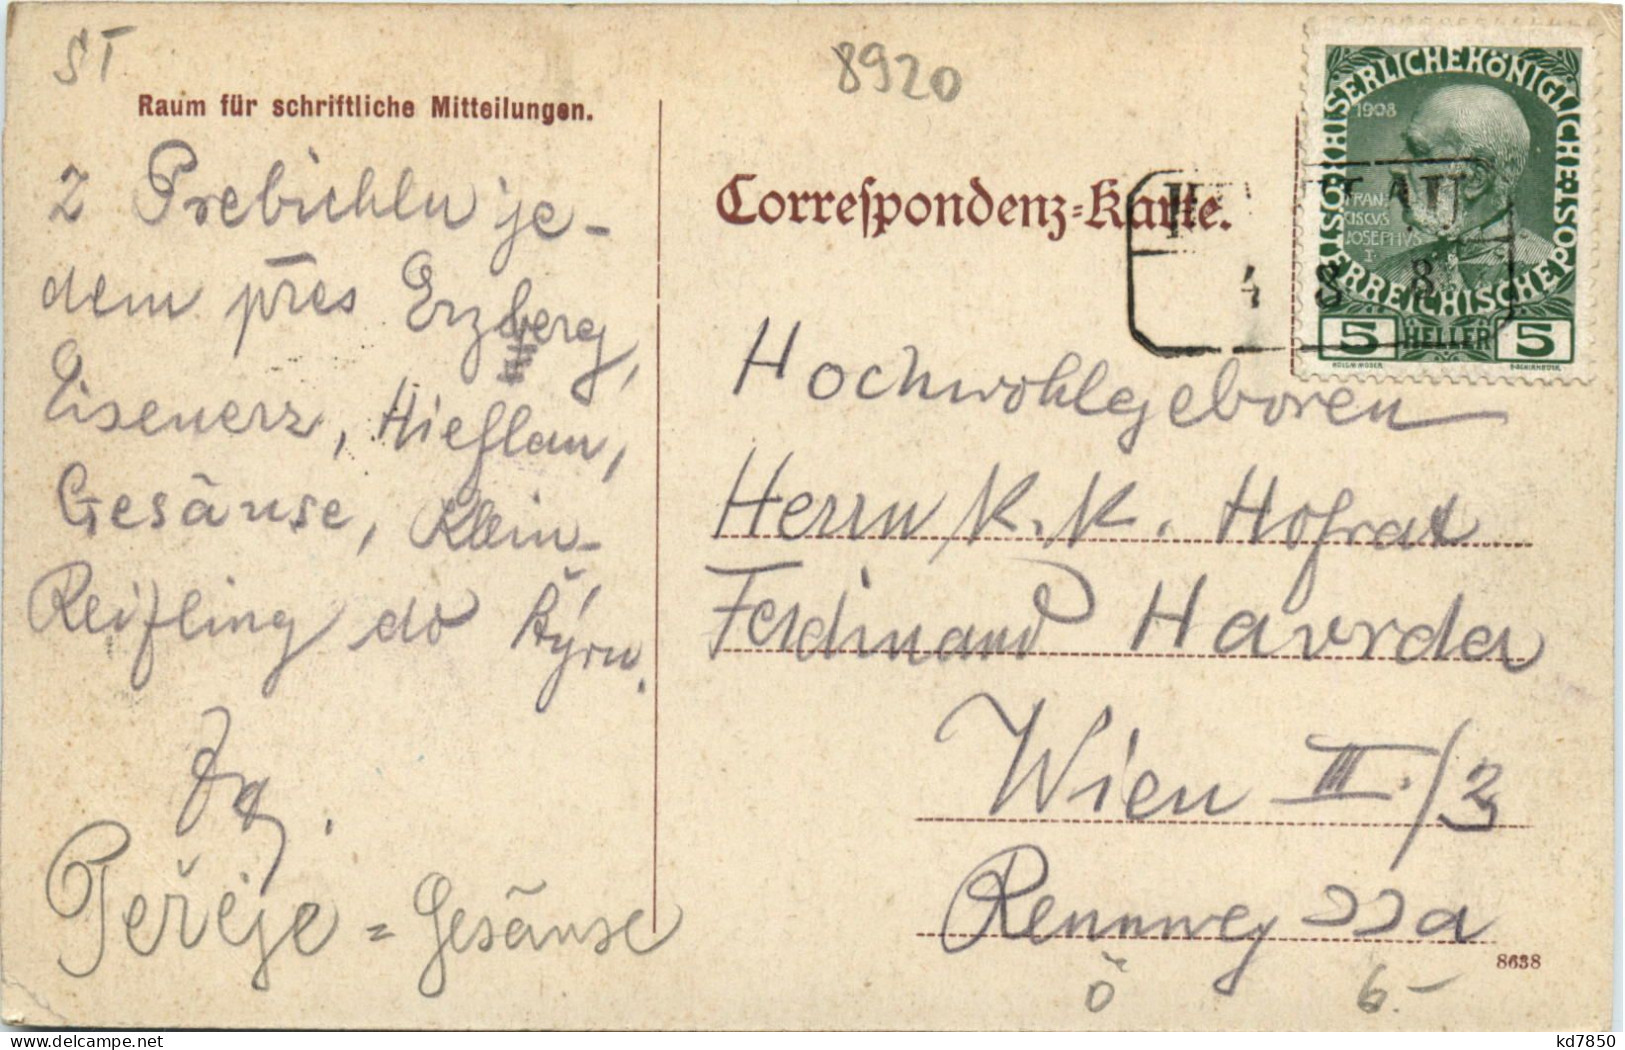 ST
8920
Raum für schriftliche Mitteilungen.
Z Prebichlu je-
dem přes Erzberg,
Eisenerz, Hieflau,
Gesäuse, Klein-
Reifling do Štýru.
Peřeje = Gesäuse
Correspondenz-Karte.
KAISERLICHE KÖNIGLICHE ÖSTERREICHISCHE POST
1908
FRAN
CISCVS
JOSEPHVS
I
5 HELLER 5
4 8 8
Hochwohlgeboren
Herrn K. K. Hofrat
Ferdinand Havrda
Wien III./3
Rennweg 22a
8638
ö 6.-
kd7850